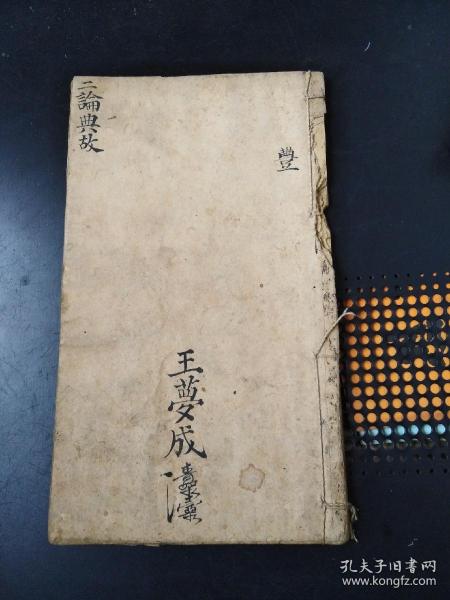 二論典故
豐
王夢成
孔夫子旧书网
www.kongfz.com